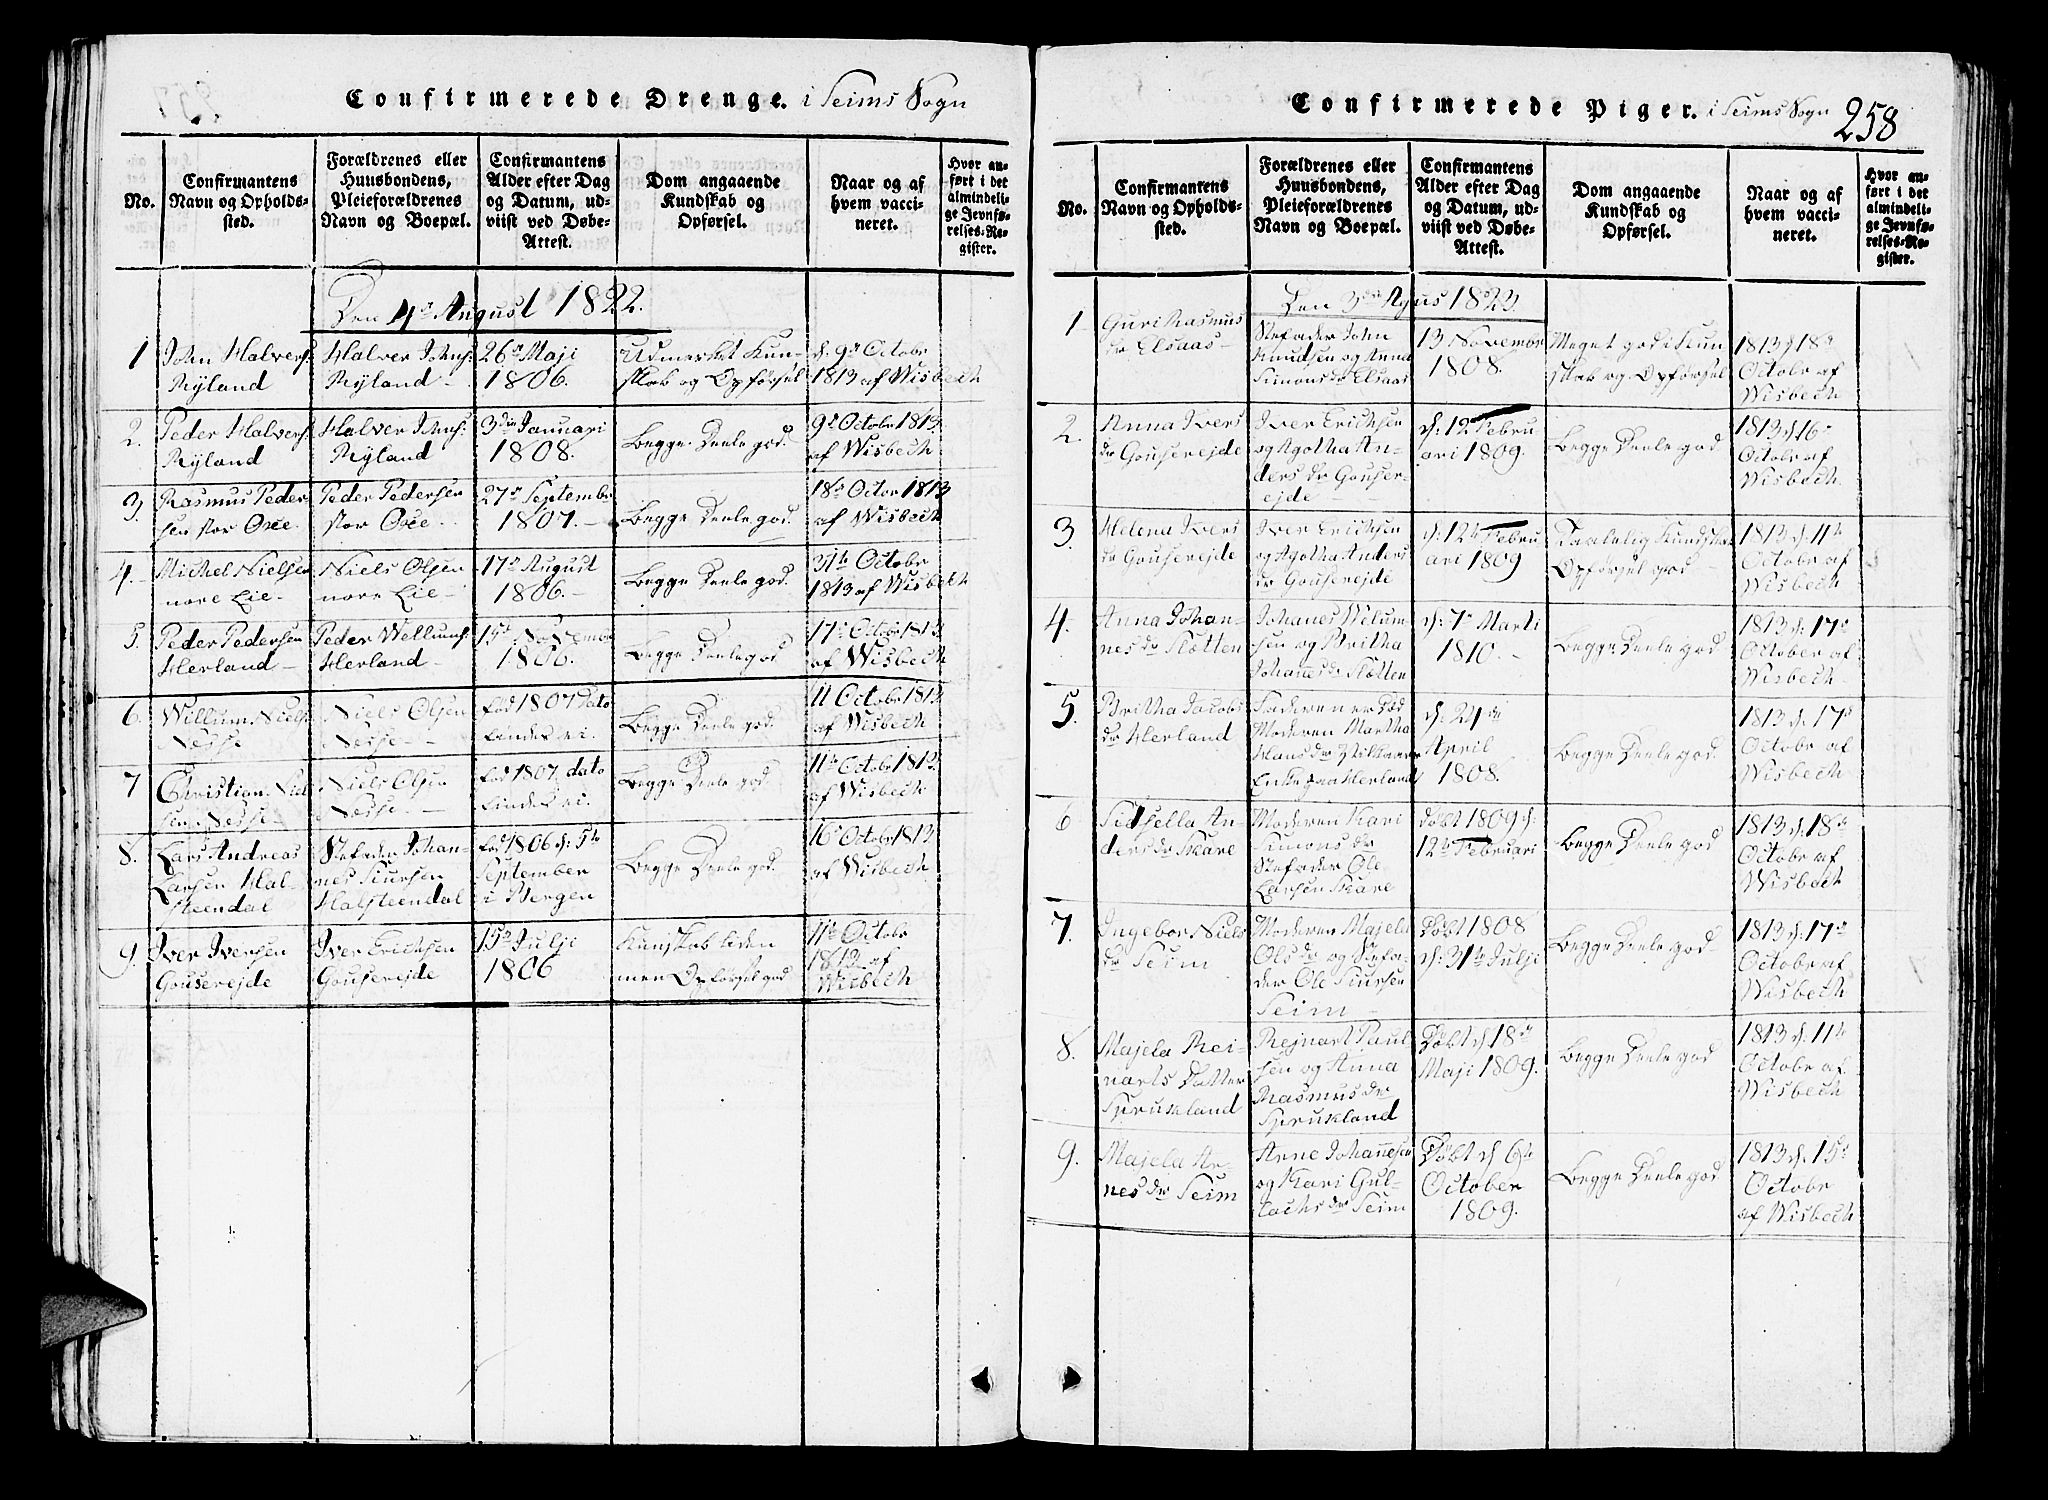 Confirmerede Drenge. i Seims Sogn
No.
Confirmantens
Navn og Opholds-
sted.
Forældrenes eller
Huusbondens,
Pleieforældrenes
Navn og Boepæl.
Confirmantens
Alder efter Dag
og Datum, ud-
viist ved Døbe-
Attest.
Dom angaaende
Kundskab og
Opførsel.
Naar og af
hvem vacci-
neret.
Hvor an-
ført i det
almindeli-
ge Jevnfø-
relses-Re-
gister.
Den 4de August 1822.
1
John Halvers:
Ryland
Halver Johns:
Ryland
26de Maji
1806.
Udmerket Kun-
skab og Opførsel
d. 9de Octobr
1813 af Wisbech
2.
Peder Halvers:
Ryland
Halver Johns:
Ryland
3die Januari
1808.
Begge Deele god.
9de Octobr 1813
af Wisbech
3.
Rasmus Peder-
sen stor Osee.
Peder Pedersen
stor Osee.
27de Septembr
1807.
Begge Deele god.
18de Octor 1813
af Wisbech
4.
Michel Nielsen
nore Eie
Niels Olsen
nore Eie
17de August
1806.
Begge Deele god.
31te Octobr
1813 af Wisbech
5.
Peder Pedersen
Herland
Peder Wellums:
Herland
15de Novembr
1806.
Begge Deele god
17de Octobr 1813
af Wisbech
6.
Willum Niels:
Nesse
Niels Olsen
Nesse
fød 1807 Dato
findes ei.
Begge Deele god.
11 Octobr 1813
af Wisbech
7
Christian Niel-
sen Nesse.
Niels Olsen
Nesse
fød 1807. dato
findes ei.
Begge Deele god.
11te Octobr 1813.
af Wisbech
8.
Lars Andreas
Larsen Hal-
steendal
Stefader Johan-
nes Siursen
Halsteendal
fød 1806 d: 5te
September
i Bergen
Begge Deele god.
16de Octobr 1813
af Wisbech
9.
Iver Iversen
Gouserejde
Iver Erichsen
Gouserejde
15de Julji
1806
Kunskab liden
men Opførsel god
11te Octobr
1813 af
Wisbech
Confirmerede Piger. i Seims Sogn
258
No.
Confirmantens
Navn og Opholds-
sted.
Forældrenes eller
Huusbondens,
Pleieforældrenes
Navn og Boepæl.
Confirmantens
Alder efter Dag
og Datum, ud-
viist ved Døbe-
Attest.
Dom angaaende
Kundskab og
Opførsel.
Naar og af
hvem vacci-
neret.
Hvor an-
ført i det
almindeli-
ge Jevnfø-
relses-Re-
gister.
Den 3die Agus 1823.
1
Guri Rasmus
dr Elsaas
Stefader John
Knudsen og Anna
Simons dr Elsaas
13 Novembr
1808.
Meget god i Kun
skab og Opførsel
1813 d 18de
Octobr af
Wisbech
2.
Anna Ivers
dr Gouserejde
Iver Erichsen
og Agotha An-
ders dr Gouser-
ejde
d: 12te Febru
ari 1809.
Begge Deele god
1813 d 16de
Octobr af
Wisbech.
3.
Helena Ivers
dr Gouserejde
Iver Erichsen
og Agotha Anders
dr Gouserejde
d: 12te Febru
ari 1809
Taalelig Kundska
Opførsel god
1813 d: 11te
October af
Wisbech
4.
Anna Johan-
nes dr Sletten
Johanes Welum-
sen og Britha
Johanes dr Sletten
d: 7de Marti
1810.
Begge Deele god
1813 d: 17de
October af
Wisbech
5.
Britha Jacobs
dr Herland
Faderen er død
Moderen Martha
Hans dr
Enke paa Herland
d: 24de
April
1808.
Begge Deele god.
1813 d: 17de
Octobr af
Wisbech
6
Sidsella An-
ders dr Skare
Moderen Kari
Simons dr
Stefader Ole
Larsen Skare
Døbt 1809 d.
12te Februari
Begge Deele god
1813 d: 18de
October af
Wisbech
7.
Ingebor Niels
dr Seim
Moderen Majela
Ols dr og Stefa-
der Ole Siursen
Seim
Døbt 1808
d: 31te Julji
Begge Deele god
1813 d: 17de
October af
Wisbech
8.
Majela Rei-
narts Datter
Sprukland
Rejnart Paul
sen og Anna
Rasmus dr
Spruckland
Døbt d 18de
Maji 1809.
Begge Deele god
1813 d: 11te
October af
Wisbech
9.
Majela Ar-
nes dr Seim
Arne Johannesen
og Kari Gul-
lachs dr Seim
Døbt d 6te
October
1809.
Begge Deele god
1813 d: 15de
Octobr
af Wisbech